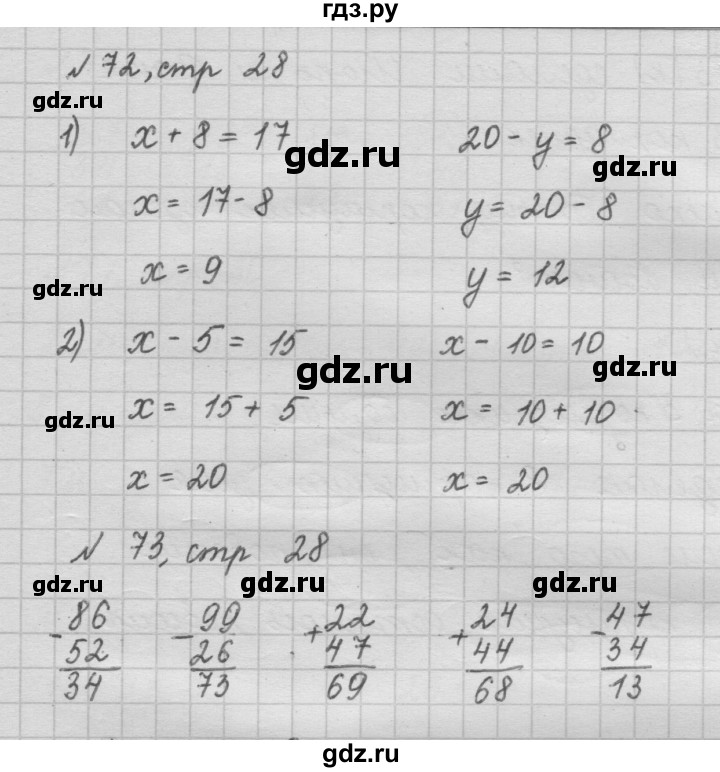 гдз.ру
№ 72, стр 28
gdz.ru
1) x + 8 = 17 20 - y = 8
gdz.ru gdz.ru
x = 17 - 8 y = 20 - 8
x = 9 y = 12
gdz.ru
2) x - 5 = 15 x - 10 = 10
gdz.ru gdz.ru
x = 15 + 5 x = 10 + 10
gdz.ru
x = 20 x = 20
№ 73, стр 28
gdz.ru gdz.ru gdz.ru
- 86 - 99 + 22 + 24 - 47
52 26 47 44 34
34 73 69 68 13
gdz.ru